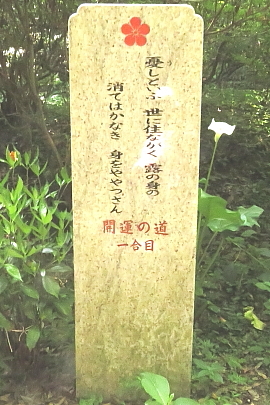 憂しといふ 世に住ながく 露の身の
消てはかなき 身をややつさん
開運の道
一合目